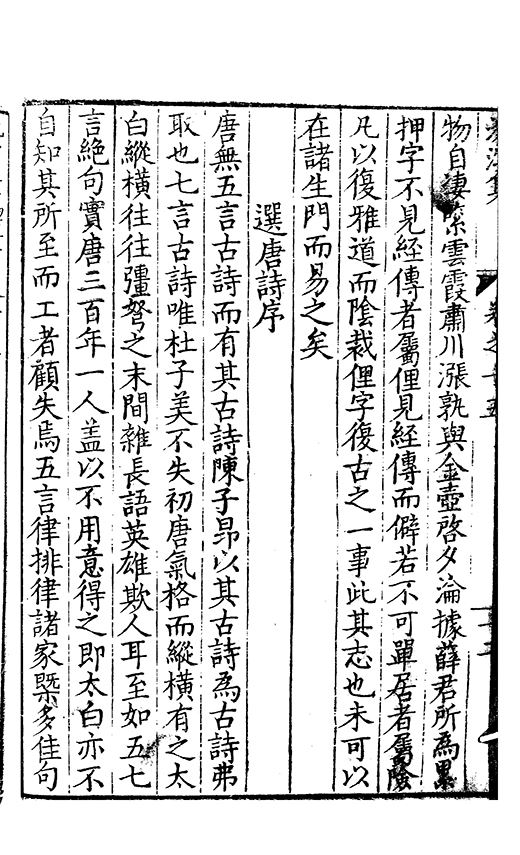 滄溟集 卷之十五
物自悽紫雲霞肅川漲孰與金壺啓夕淪據薛君所為畧
押字不見經傳者屬俚見經傳而僻若不可單居者屬險
凡以復雅道而陰裁俚字復古之一事此其志也未可以
在諸生門而易之矣
選唐詩序
唐無五言古詩而有其古詩陳子昂以其古詩為古詩弗
取也七言古詩唯杜子美不失初唐氣格而縱橫有之太
白縱橫往往彊弩之末間雜長語英雄欺人耳至如五七
言絕句實唐三百年一人盖以不用意得之即太白亦不
自知其所至而工者顧失焉五言律排律諸家槩多佳句